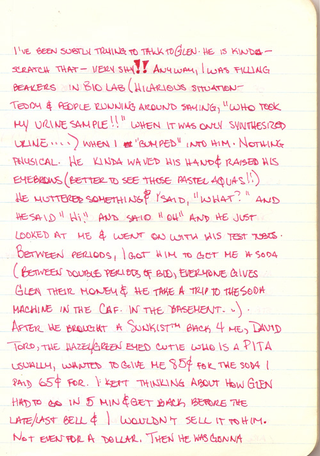 I'VE BEEN SUBTLY TRYING TO TALK TO GLEN. HE IS KINDA-
SCRATCH THAT - VERY SHY!! ANYWAY, I WAS FILLING
BEAKERS IN BIO LAB (HILARIOUS SITUATION-
TEDDY & PEOPLE RUNNING AROUND SAYING, "WHO TOOK
MY URINE SAMPLE!!" WHEN IT WAS ONLY SYNTHESIZED
URINE....) WHEN I "BUMPED" INTO HIM. NOTHING
PHYSICAL. HE KINDA WAVED HIS HAND & RAISED HIS
EYEBROWS (BETTER TO SEE THOSE PASTEL AQUAS!!)
HE MUTTERED SOMETHING & I SAID, "WHAT?" AND
HE SAID "HI." AND SAID "OH" AND HE JUST
LOOKED AT ME & WENT ON WITH HIS TEST TUBES.
BETWEEN PERIODS, I GOT HIM TO GET ME A SODA
(BETWEEN DOUBLE PERIODS OF BIO, EVERYONE GIVES
GLEN THEIR MONEY & HE TAKE A TRIP TO THE SODA
MACHINE IN THE CAF. IN THE BASEMENT. :)
AFTER HE BROUGHT A SUNKIST™ BACK 4 ME, DAVID
TORO, THE HAZEL/GREEN EYED CUTIE WHO IS A PITA
USUALLY, WANTED TO GIVE ME 85¢ FOR THE SODA I
PAID 65¢ FOR. I KEPT THINKING ABOUT HOW GLEN
HAD TO GO IN 5 MIN & GET BACK BEFORE THE
LATE/LAST BELL & I WOULDN'T SELL IT TO HIM.
NOT EVEN FOR A DOLLAR. THEN HE WAS GONNA